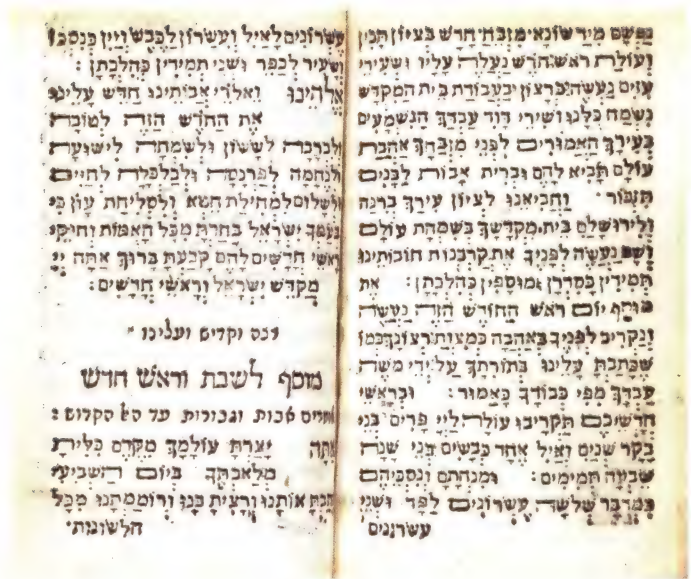 נפשם מיד שונא מזבח חדש בציון תכין
ועולת ראש חדש נעלה עליו ושעירי
עזים נעשה ברצון ובעבודת בית המקדש
נשמח כלנו ושירי דוד עבדך הנשמעים
בעירך האמורים לפני מזבחך אהבת
עולם תביא להם וברית אבות לבנים
תזכור׃ והביאנו לציון עירך ברנה
ולירושלם בית מקדשך בשמחת עולם
ושם נעשה לפניך את קרבנות חובותינו
תמידין כסדרן ומוספין כהלכתן: את
מוסף יום ראש החודש הזה נעשה
ונקריב לפניך באהבה כמצות רצונך כמו
שכתבת עלינו בתורתך על ידי משה
עבדך מפי כבודך כאמור: ובראשי
חדשיכם תקריבו עולה ליי פרים בני
בקר שנים ואיל אחד כבשים בני שנה
שבעה תמימים: ומנחתם ונסכיהם
כמדבר שלשה עשרונים לפר ושני
עשרונים
עשרונים לאיל ועשרון לכבש ויין כנסכו
ושעיר לכפר ושני תמידין כהלכתן:
אלהינו ואלהי אבותינו חדש עלינו
את החדש הזה לטובה
ולברכה לששון ולשמחה לישועה
ולנחמה לפרנסה ולכלכלה לחיים
ושלום למחילת חטא ולסליחת עון כי
בעמך ישראל בחרת מכל האמות וחוקי
ראשי חדשים להם קבעת ברוך אתה יי
מקדש ישראל וראשי חדשים:
וקדיש ועלינו
מוסף לשבת וראש חדש
אבות וגבורות עד הא הקדוש:
אתה יצרת עולמך מקדם כלית
מלאכתך ביום השביעי
אותנו ורצית בנו ורוממתנו מכל
הלשונות